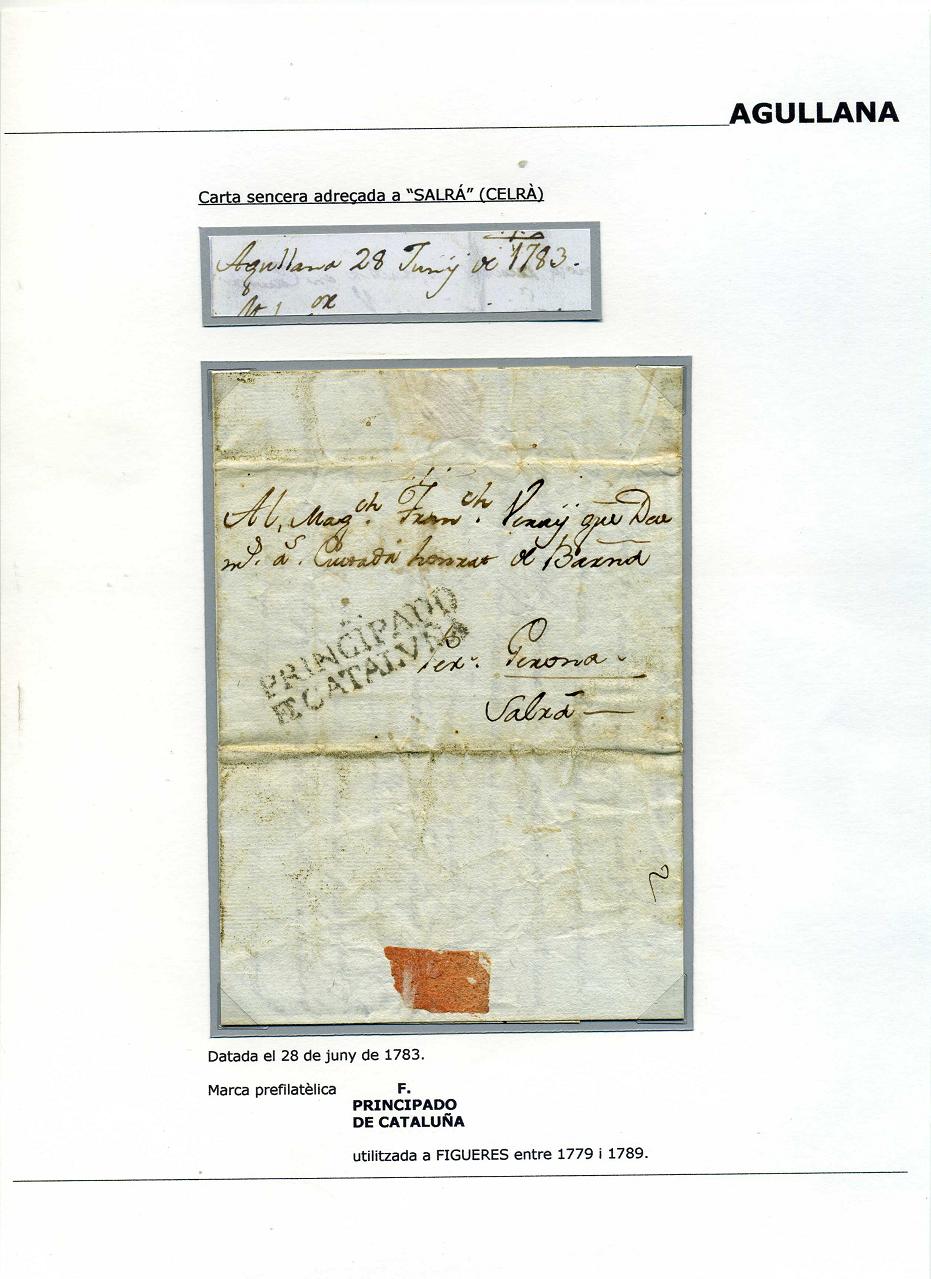 AGULLANA
Carta sencera adreçada a “SALRÁ” (CELRÀ)
Agullana 28 Juny de 1783.
Al, Magch. Franch. Veraÿ que Deu
ms. as. Ciutadá honrat de Barna
F.
PRINCIPADO
DE CATALVÑA
Per. Gerona.
Salrá
Datada el 28 de juny de 1783.
Marca prefilatèlica F.
PRINCIPADO
DE CATALUÑA
utilitzada a FIGUERES entre 1779 i 1789.